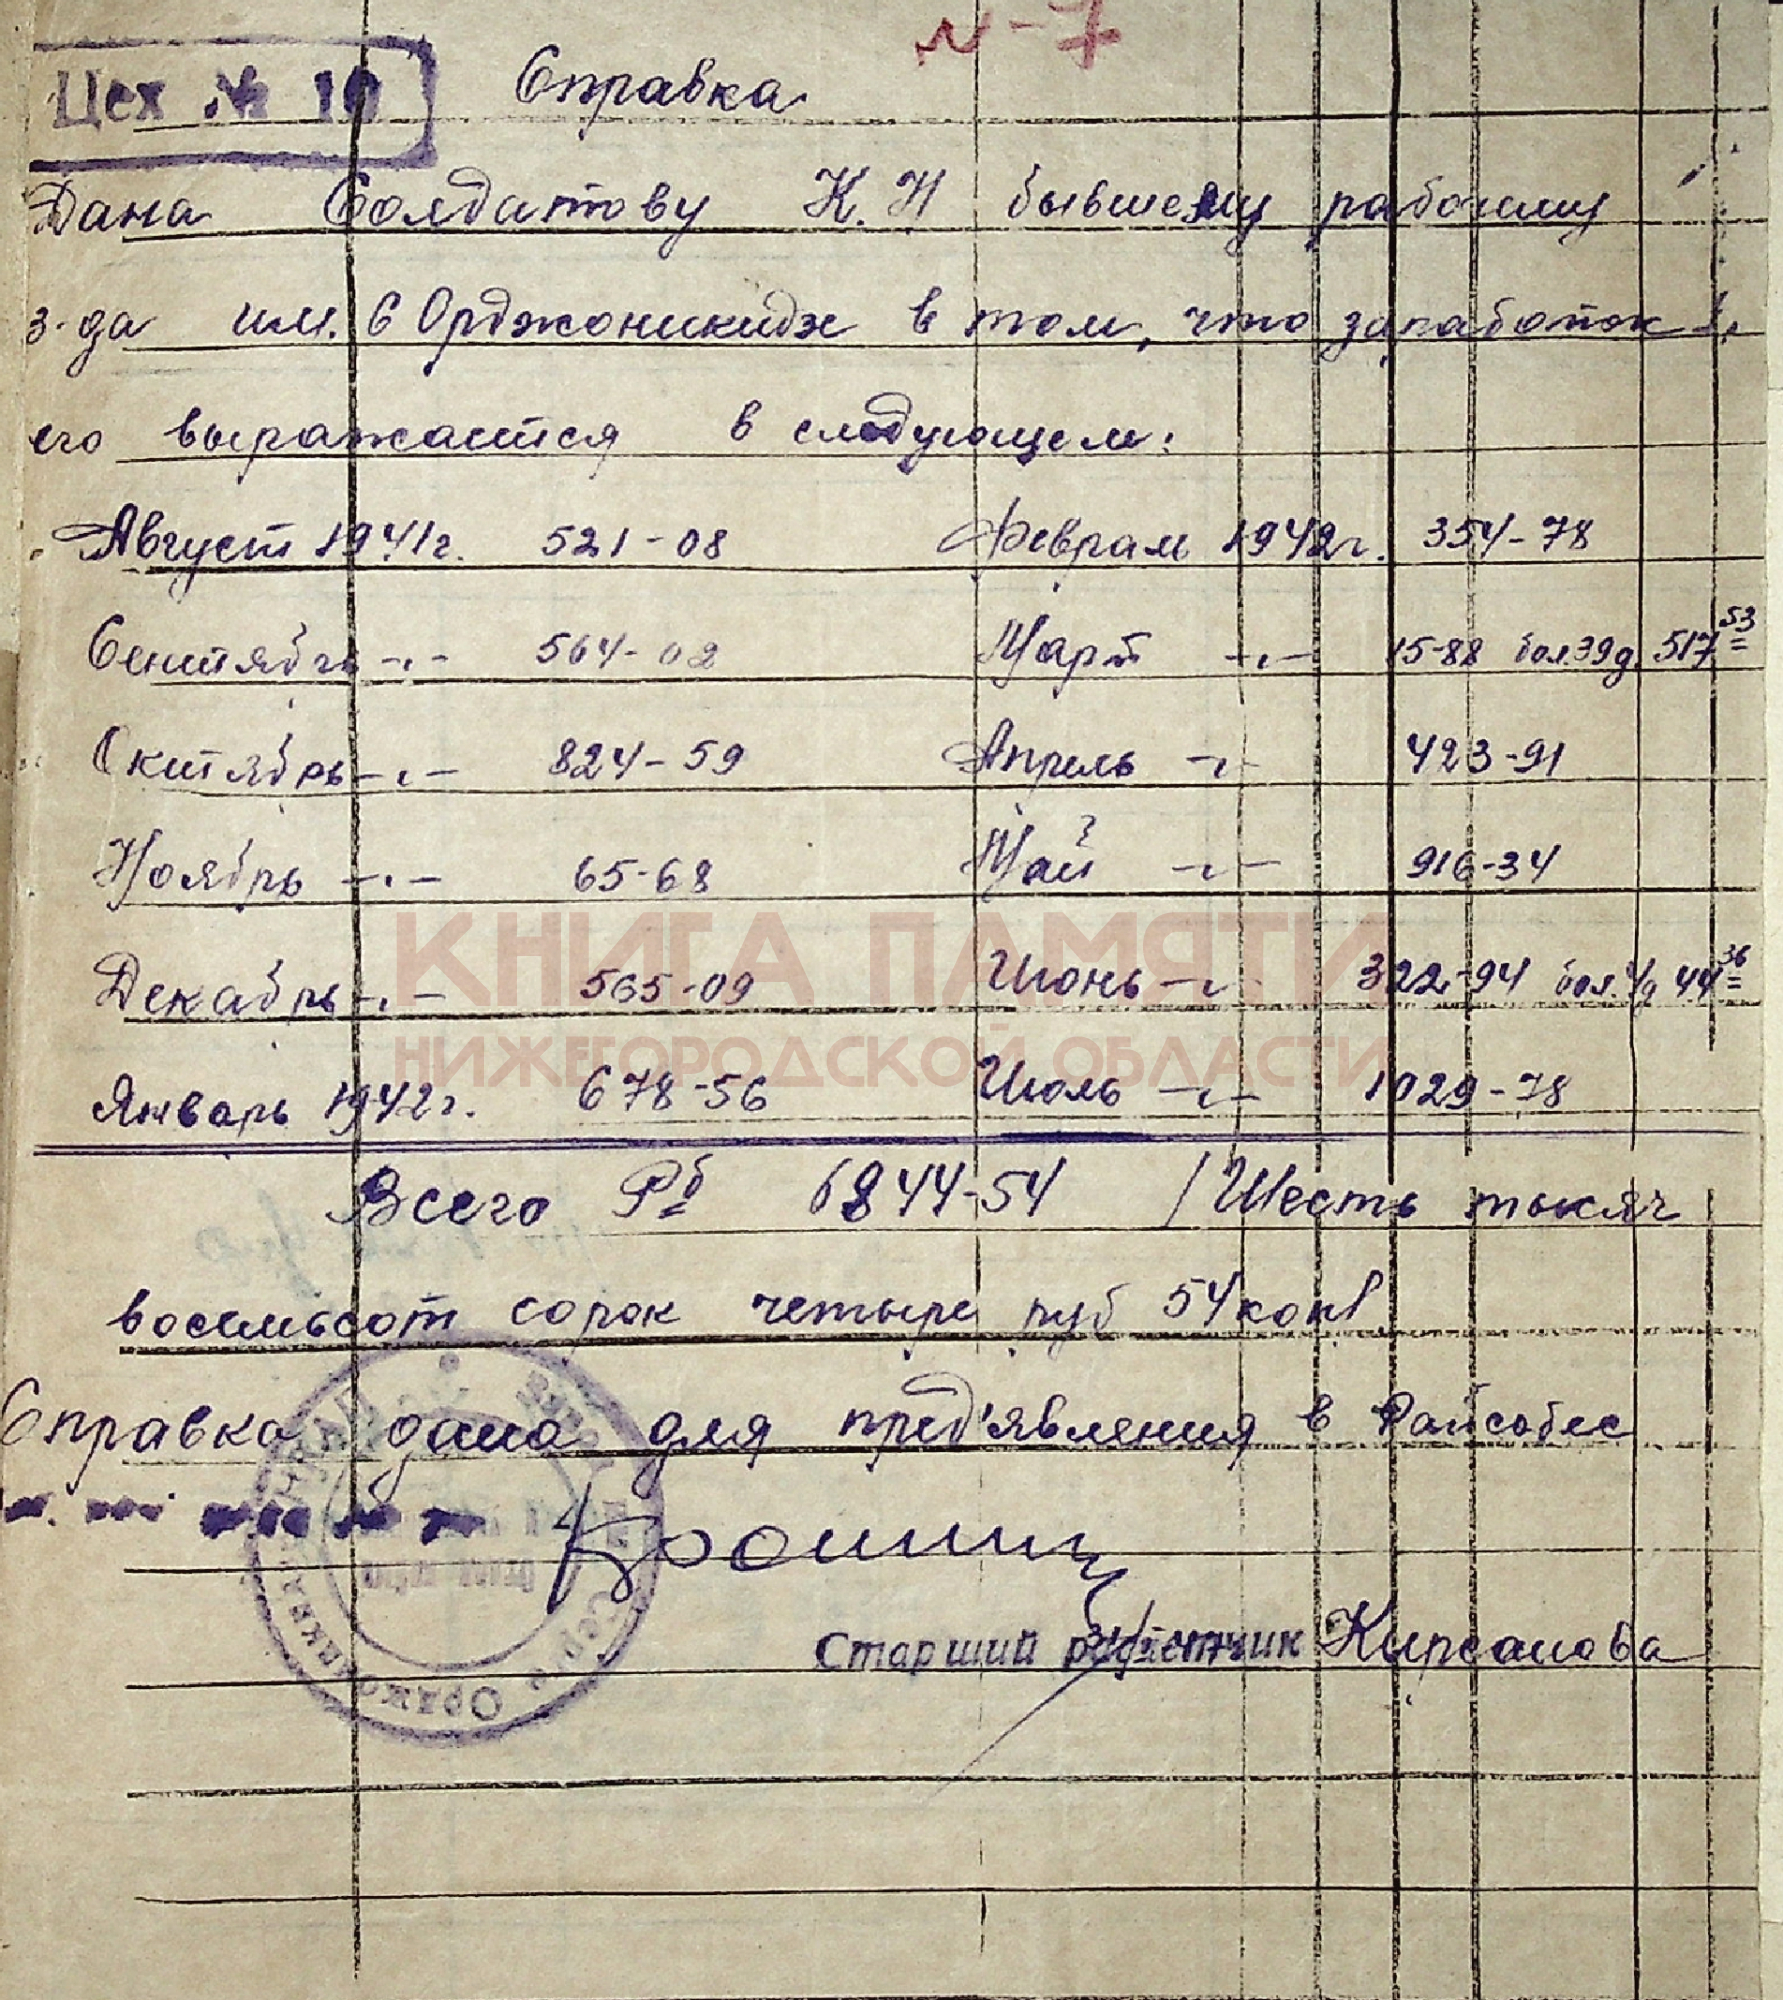 N-7
Цех № 10
Справка
Дана Солдатову К.Н бывшему рабочему
з-да им. С Орджоникидзе в том, что заработок
его выражается в следующем:
Август 1941г. 521-08 Февраль 1942г. 354-78
Сентябрь -"- 564-02 Март -"- 15-88 бол.39д. 517 53
Октябрь -"- 824-59 Апрель -"- 423-91
Ноябрь -"- 65-68 Май -"- 916-34
Декабрь -"- 565-09 Июнь -"- 322-94 бол. 4д 44 36
Январь 1942г. 678-56 Июль -"- 1029-78
КНИГА ПАМЯТИ
НИЖЕГОРОДСКОЙ ОБЛАСТИ
Всего Рб 6844-54 / Шесть тысяч
восемьсот сорок четыре руб 54 коп/
Справка дана для пред'явления в Райсобес
Старший расчетчик Кирсанова